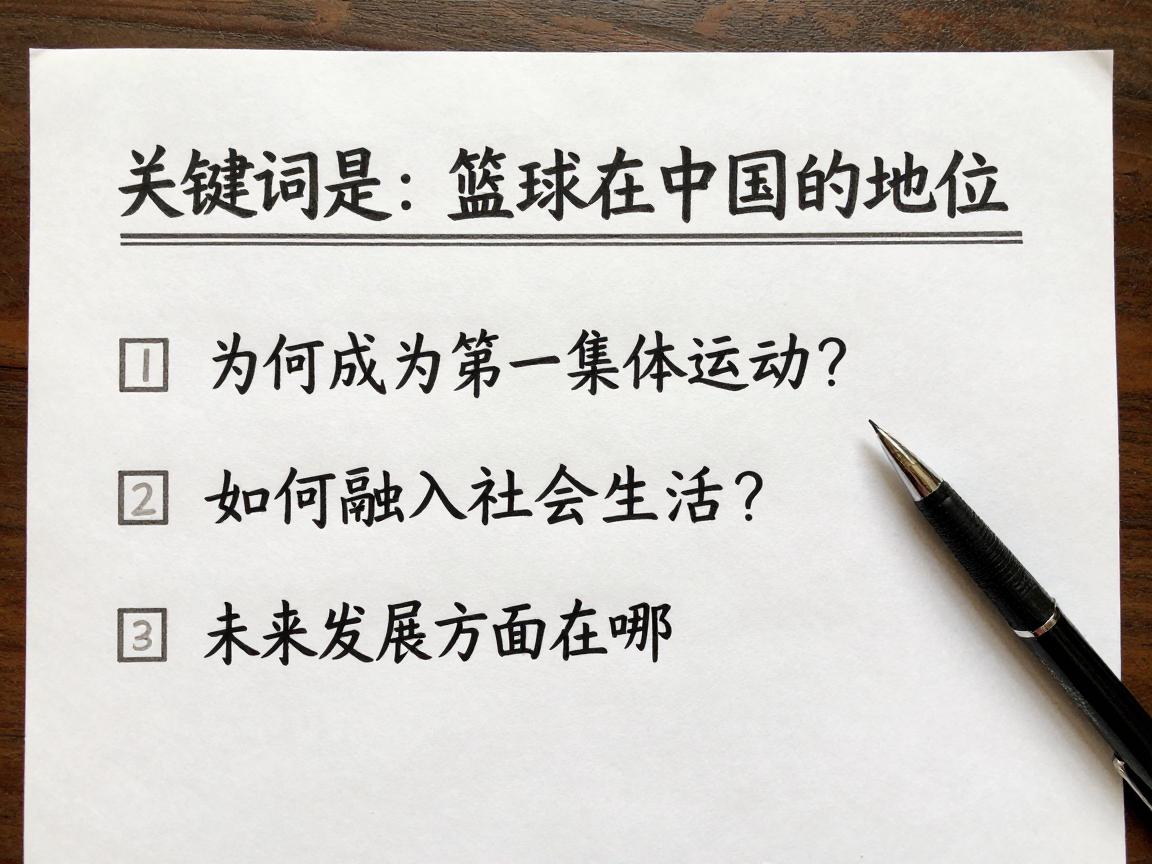 关键词是：篮球在中国的地位
1 为何成为第一集体运动？
2 如何融入社会生活？
3 未来发展方面在哪